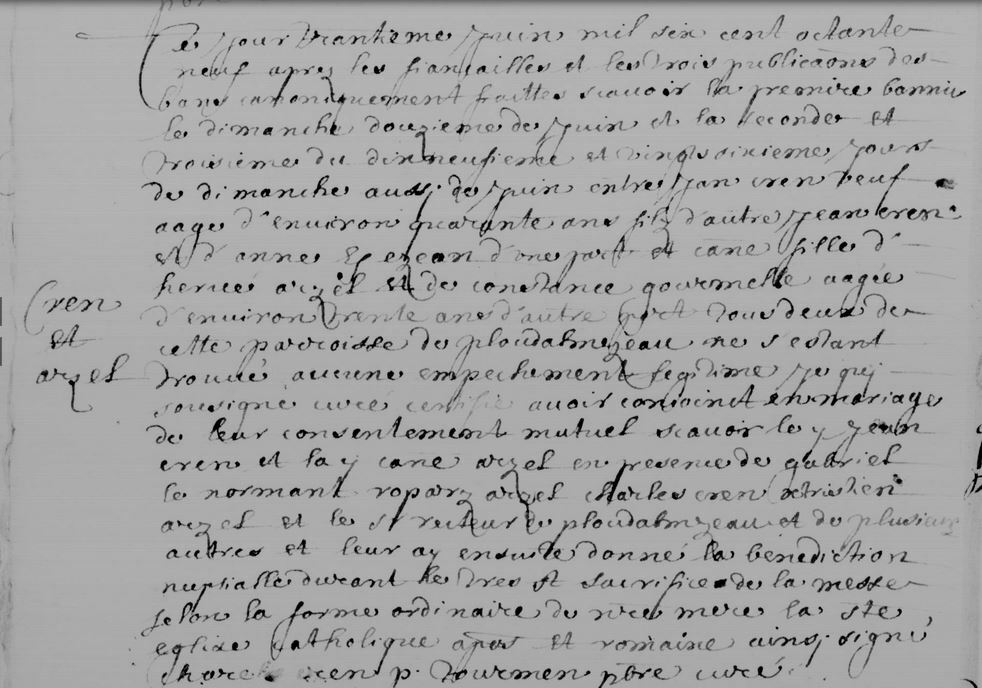 Ce jour trantieme juin mil six cent octante
neuf apres les fiançailles et les trois publicaons des
bans canoniquement faittes scavoir la premire bannie
le dimanche douzieme de juin et la seconde et
troisieme du dixneufieme et vingtsixieme jours
de dimanche aussj de juin entre jan cren veuf
aage d'environ quarante ans fils d'autre jean cren
et d'anne d'une part et cane fille d'
hervé arzel et de constance gourmelle aagée
d'environ trente ans d'autre part tous deux de
cette parroisse de ploudalmezeau ne s'estant
trouué aucune empechement legitime je quj
sousigne curé certifie auoir conioinct en mariage
de leur consentement mutuel scauoir le y jean
cren et la y cane arzel en presence de gabriel
le normant roparz arzel charles cren xtristien
arzel et le sr recteur de ploudalmezeau et de plusieurs
autres et leur ay ensuite donné la benediction
nuptialle durant le tres st sacrifice de la messe
selon la forme ordinaire de nre mere la ste
eglise catholique apos et romaine ainsj signé
cren p. tourmen pbre curé.
Cren
et
arzel